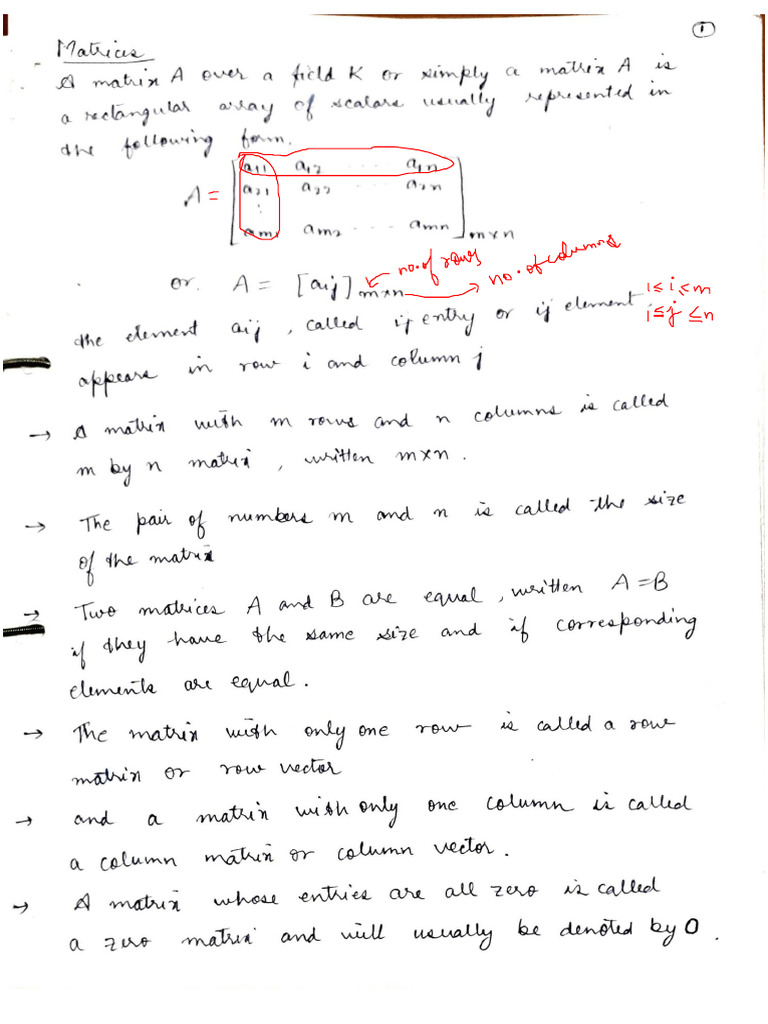 1
Matrices
A matrix A over a field K or simply a matrix A is
a rectangular array of scalars usually represented in
the following form.
A = [a11 a12 ... a1n
a21 a22 a2n
⋮
am1 am2 ... amn]m×n
or A = [aij]m×n no. of rows no. of columns
the element aij, called ij entry or ij element, 1≤i≤m
1≤j≤n
appears in row i and column j
→ A matrix with m rows and n columns is called
m by n matrix, written m×n.
→ The pair of numbers m and n is called the size
of the matrix
→ Two matrices A and B are equal, written A=B
if they have the same size and if corresponding
elements are equal.
→ The matrix with only one row is called a row
matrix or row vector
→ and a matrix with only one column is called
a column matrix or column vector.
→ A matrix whose entries are all zero is called
a zero matrix and will usually be denoted by 0.